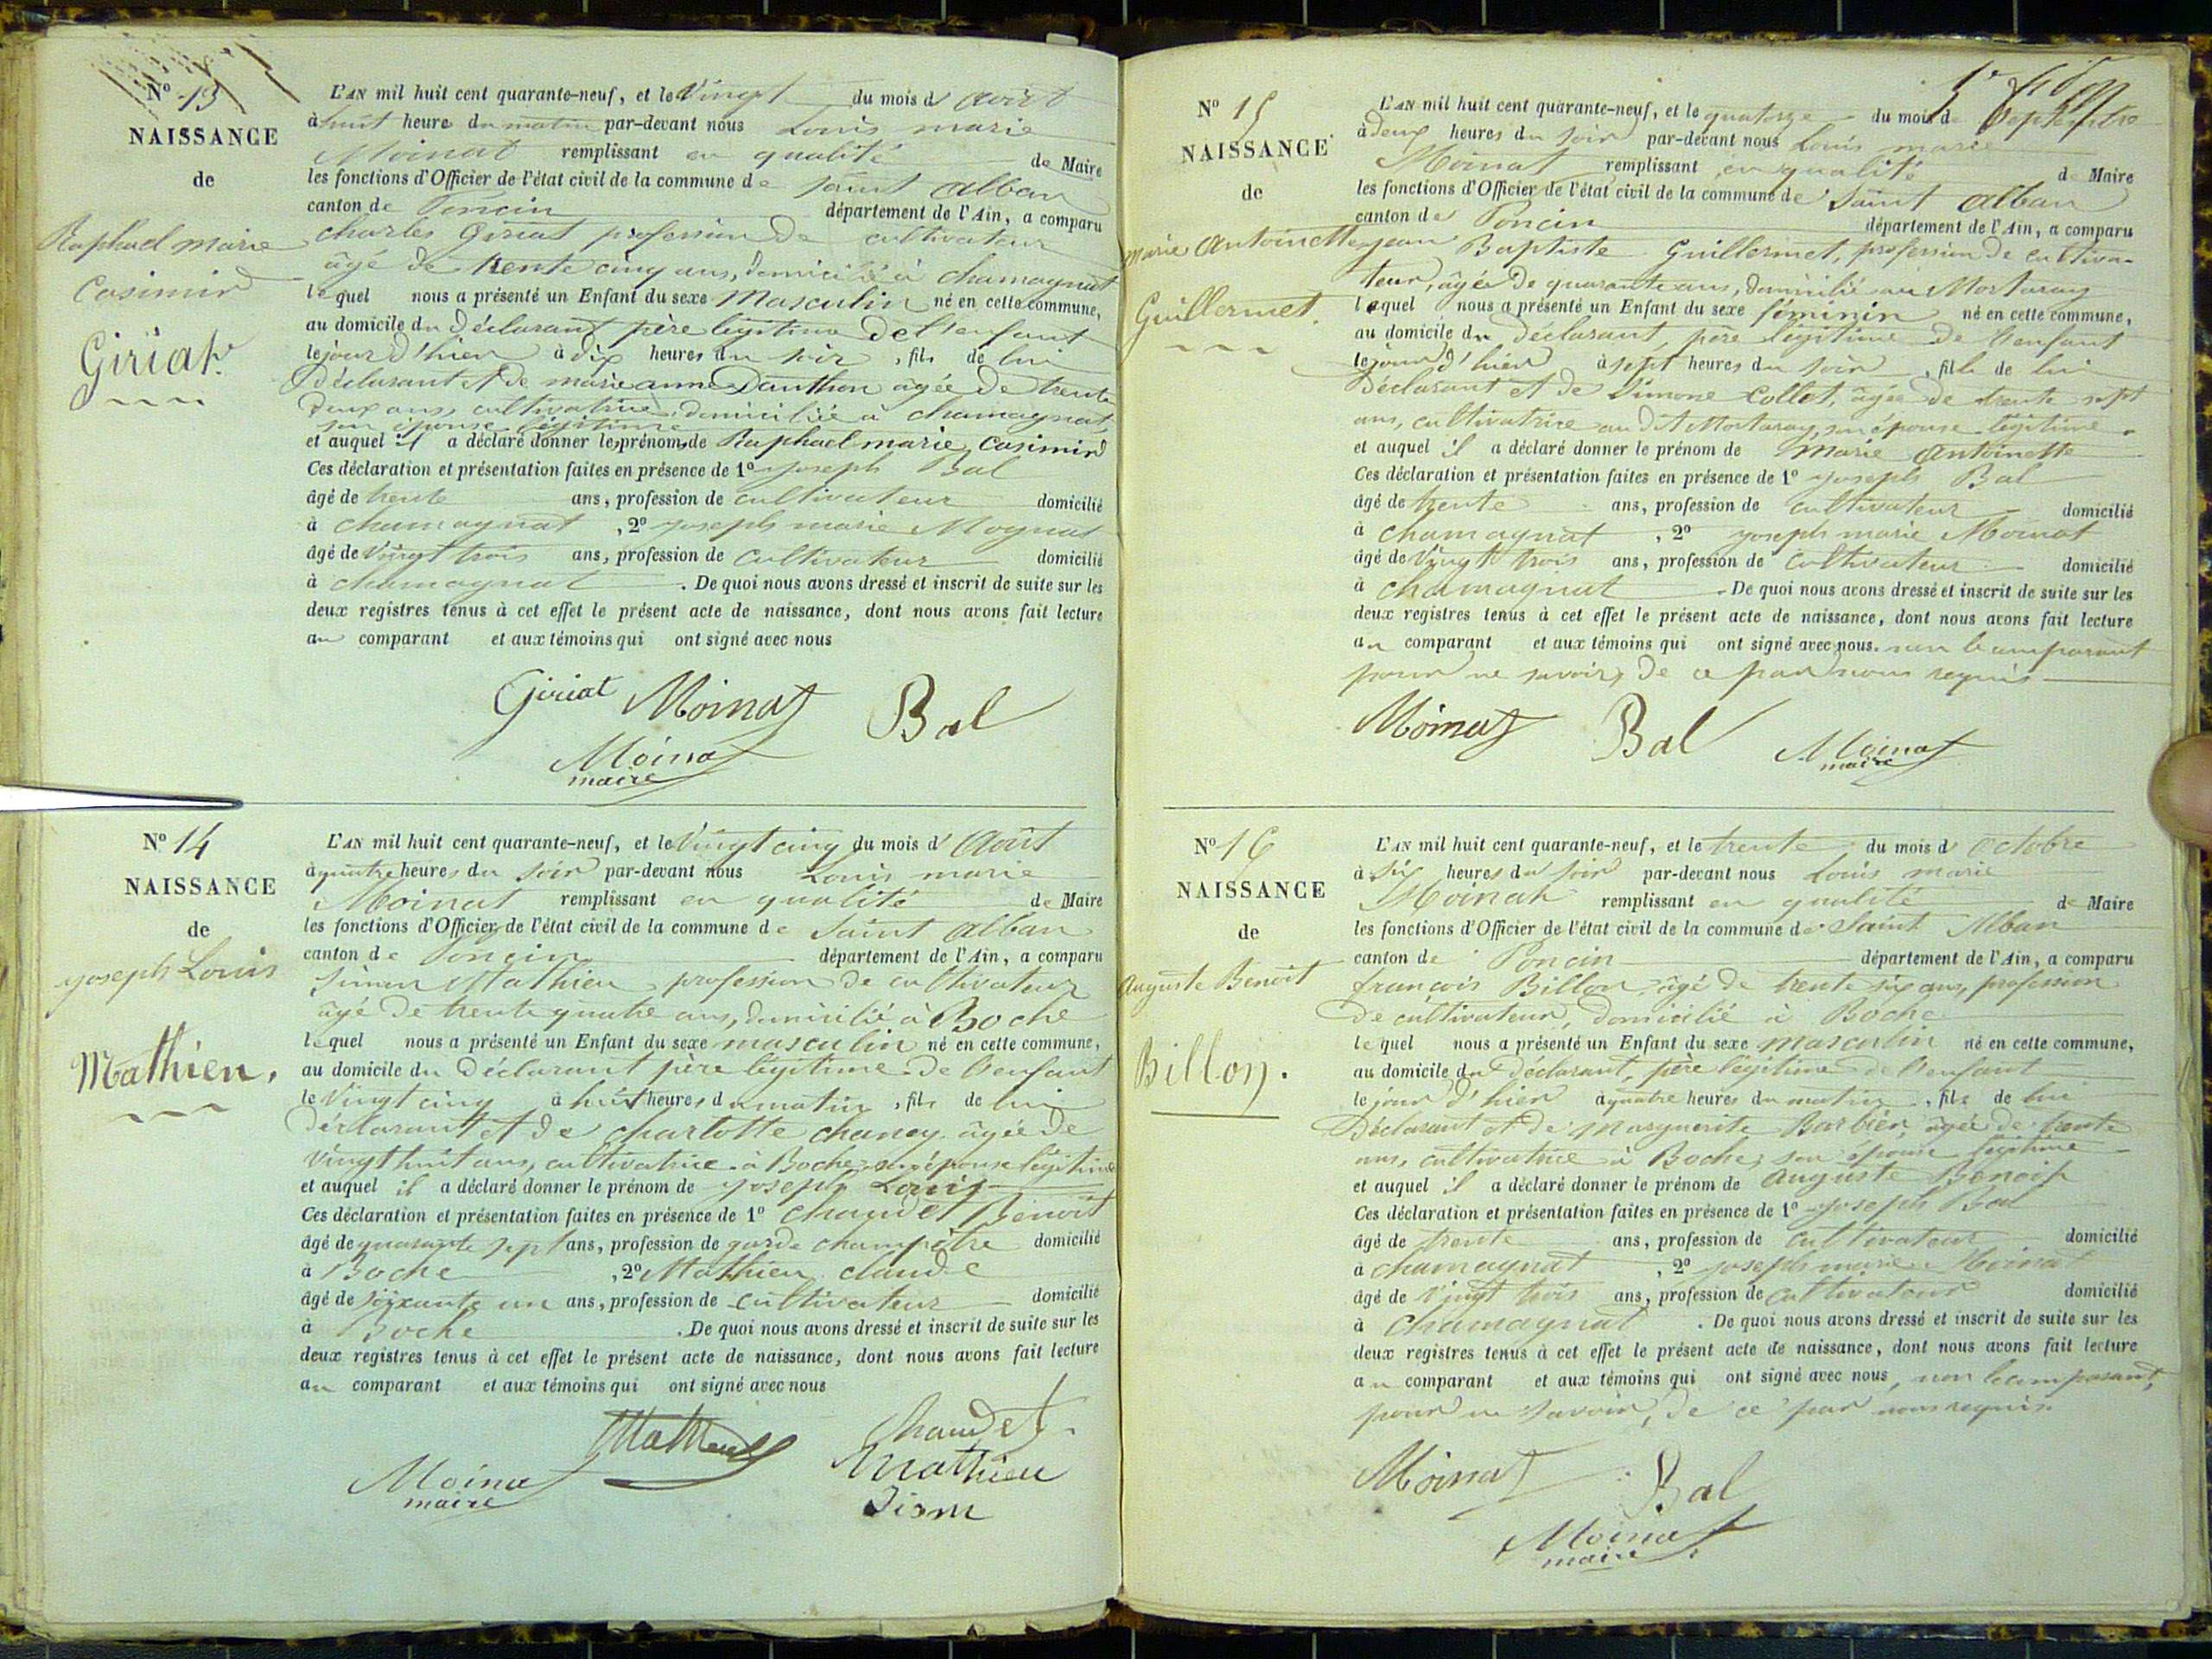 N° 13
NAISSANCE
de
Raphael marie
Casimir
Giriat.
L'AN mil huit cent quarante-neuf, et le Vingt du mois d'Août
à huit heure du matin par-devant nous Louis marie
Moinat remplissant en qualité de Maire
les fonctions d'Officier de l'état civil de la commune de saint alban
canton de Poncin département de l'Ain, a comparu
charles Giriat profession de cultivateur
âgé de trente cinq ans, domicilié à chamagnat
lequel nous a présenté un Enfant du sexe Masculin né en cette commune,
au domicile du Déclarant père légitime de l'enfant
le jour d'hier à dix heures du soir, fils de lui
Déclarant et de marie anne Danthon agée de trente
deux ans, cultivatrice, domiciliée à chamagnat
son épouse légitime
et auquel il a déclaré donner les prénoms de Raphael marie Casimir
Ces déclaration et présentation faites en présence de 1° joseph Bal
âgé de trente ans, profession de cultivateur domicilié
à chamagnat, 2° joseph marie Moynat
âgé de Vingt trois ans, profession de Cultivateur domicilié
à chamagnat. De quoi nous avons dressé et inscrit de suite sur les
deux registres tenus à cet effet le présent acte de naissance, dont nous avons fait lecture
au comparant et aux témoins qui ont signé avec nous
Giriat Moinat Bal
Moinat
maire
N° 14
NAISSANCE
de
joseph Louis
Mathieu.
L'AN mil huit cent quarante-neuf, et le Vingt cinq du mois d'Août
à quatre heures du soir par-devant nous Louis marie
Moinat remplissant en qualité de Maire
les fonctions d'Officier de l'état civil de la commune de Saint alban
canton de Poncin département de l'Ain, a comparu
Simon Mathieu profession de cultivateur
âgé de trente quatre ans, domicilié à Boche
lequel nous a présenté un Enfant du sexe masculin né en cette commune,
au domicile du Déclarant père légitime de l'enfant
le Vingt cinq à huit heures du matin, fils de lui
Déclarant et de charlotte chaney âgée de
vingt huit ans, cultivatrice à Boche, son épouse légitime
et auquel il a déclaré donner le prénom de joseph Louis
Ces déclaration et présentation faites en présence de 1° Chaudet Benoît
âgé de quarante sept ans, profession de garde champêtre domicilié
à Boche, 2° Mathieu claude
âgé de soixante un ans, profession de cultivateur domicilié
à Boche. De quoi nous avons dressé et inscrit de suite sur les
deux registres tenus à cet effet le présent acte de naissance, dont nous avons fait lecture
au comparant et aux témoins qui ont signé avec nous
Mathieu Chaudet
Moinat Mathieu
maire
N° 15
NAISSANCE
de
marie Antoinette
Guillermet.
L'AN mil huit cent quarante-neuf, et le quatorze du mois de Septembre
à deux heures du soir par-devant nous Louis marie
Moinat remplissant en qualité de Maire
les fonctions d'Officier de l'état civil de la commune de Saint alban
canton de Poncin département de l'Ain, a comparu
jean Baptiste Guillermet, profession de cultiva-
teur, âgé de quarante ans, domicilié au Mortaray
lequel nous a présenté un Enfant du sexe féminin né en cette commune,
au domicile du Déclarant, père légitime de l'enfant
le jour d'hier à sept heures du soir, fille de lui
Déclarant et de Simone Collet, âgée de trente sept
ans, cultivatrice au dit Mortaray, son épouse légitime
et auquel il a déclaré donner le prénom de Marie Antoinette
Ces déclaration et présentation faites en présence de 1° joseph Bal
âgé de trente ans, profession de cultivateur domicilié
à chamagnat, 2° joseph marie Moinat
âgé de Vingt trois ans, profession de Cultivateur domicilié
à chamagnat. De quoi nous avons dressé et inscrit de suite sur les
deux registres tenus à cet effet le présent acte de naissance, dont nous avons fait lecture
au comparant et aux témoins qui ont signé avec nous. non le comparant
pour ne savoir, de ce par nous requis
Moinat Bal Moinat
maire
N° 16
NAISSANCE
de
Auguste Benoît
Billon.
L'AN mil huit cent quarante-neuf, et le trente du mois d'Octobre
à six heures du soir par-devant nous Louis marie
Moinat remplissant en qualité de Maire
les fonctions d'Officier de l'état civil de la commune de Saint Alban
canton de Poncin département de l'Ain, a comparu
françois Billon, âgé de trente six ans, profession
de cultivateur, domicilié à Boche
lequel nous a présenté un Enfant du sexe Masculin né en cette commune,
au domicile du Déclarant, père légitime de l'enfant
le jour d'hier à quatre heures du matin, fils de lui
Déclarant et de Marguerite Barbier, âgée de trente
ans, cultivatrice à Boche, son épouse légitime
et auquel il a déclaré donner le prénom de Auguste Benoît
Ces déclaration et présentation faites en présence de 1° joseph Bal
âgé de trente ans, profession de Cultivateur domicilié
à chamagnat, 2° joseph marie Moinat
âgé de Vingt trois ans, profession de cultivateur domicilié
à Chamagnat. De quoi nous avons dressé et inscrit de suite sur les
deux registres tenus à cet effet le présent acte de naissance, dont nous avons fait lecture
au comparant et aux témoins qui ont signé avec nous, non le comparant,
pour ne savoir, de ce par nous requis.
Moinat Bal
Moinat
maire